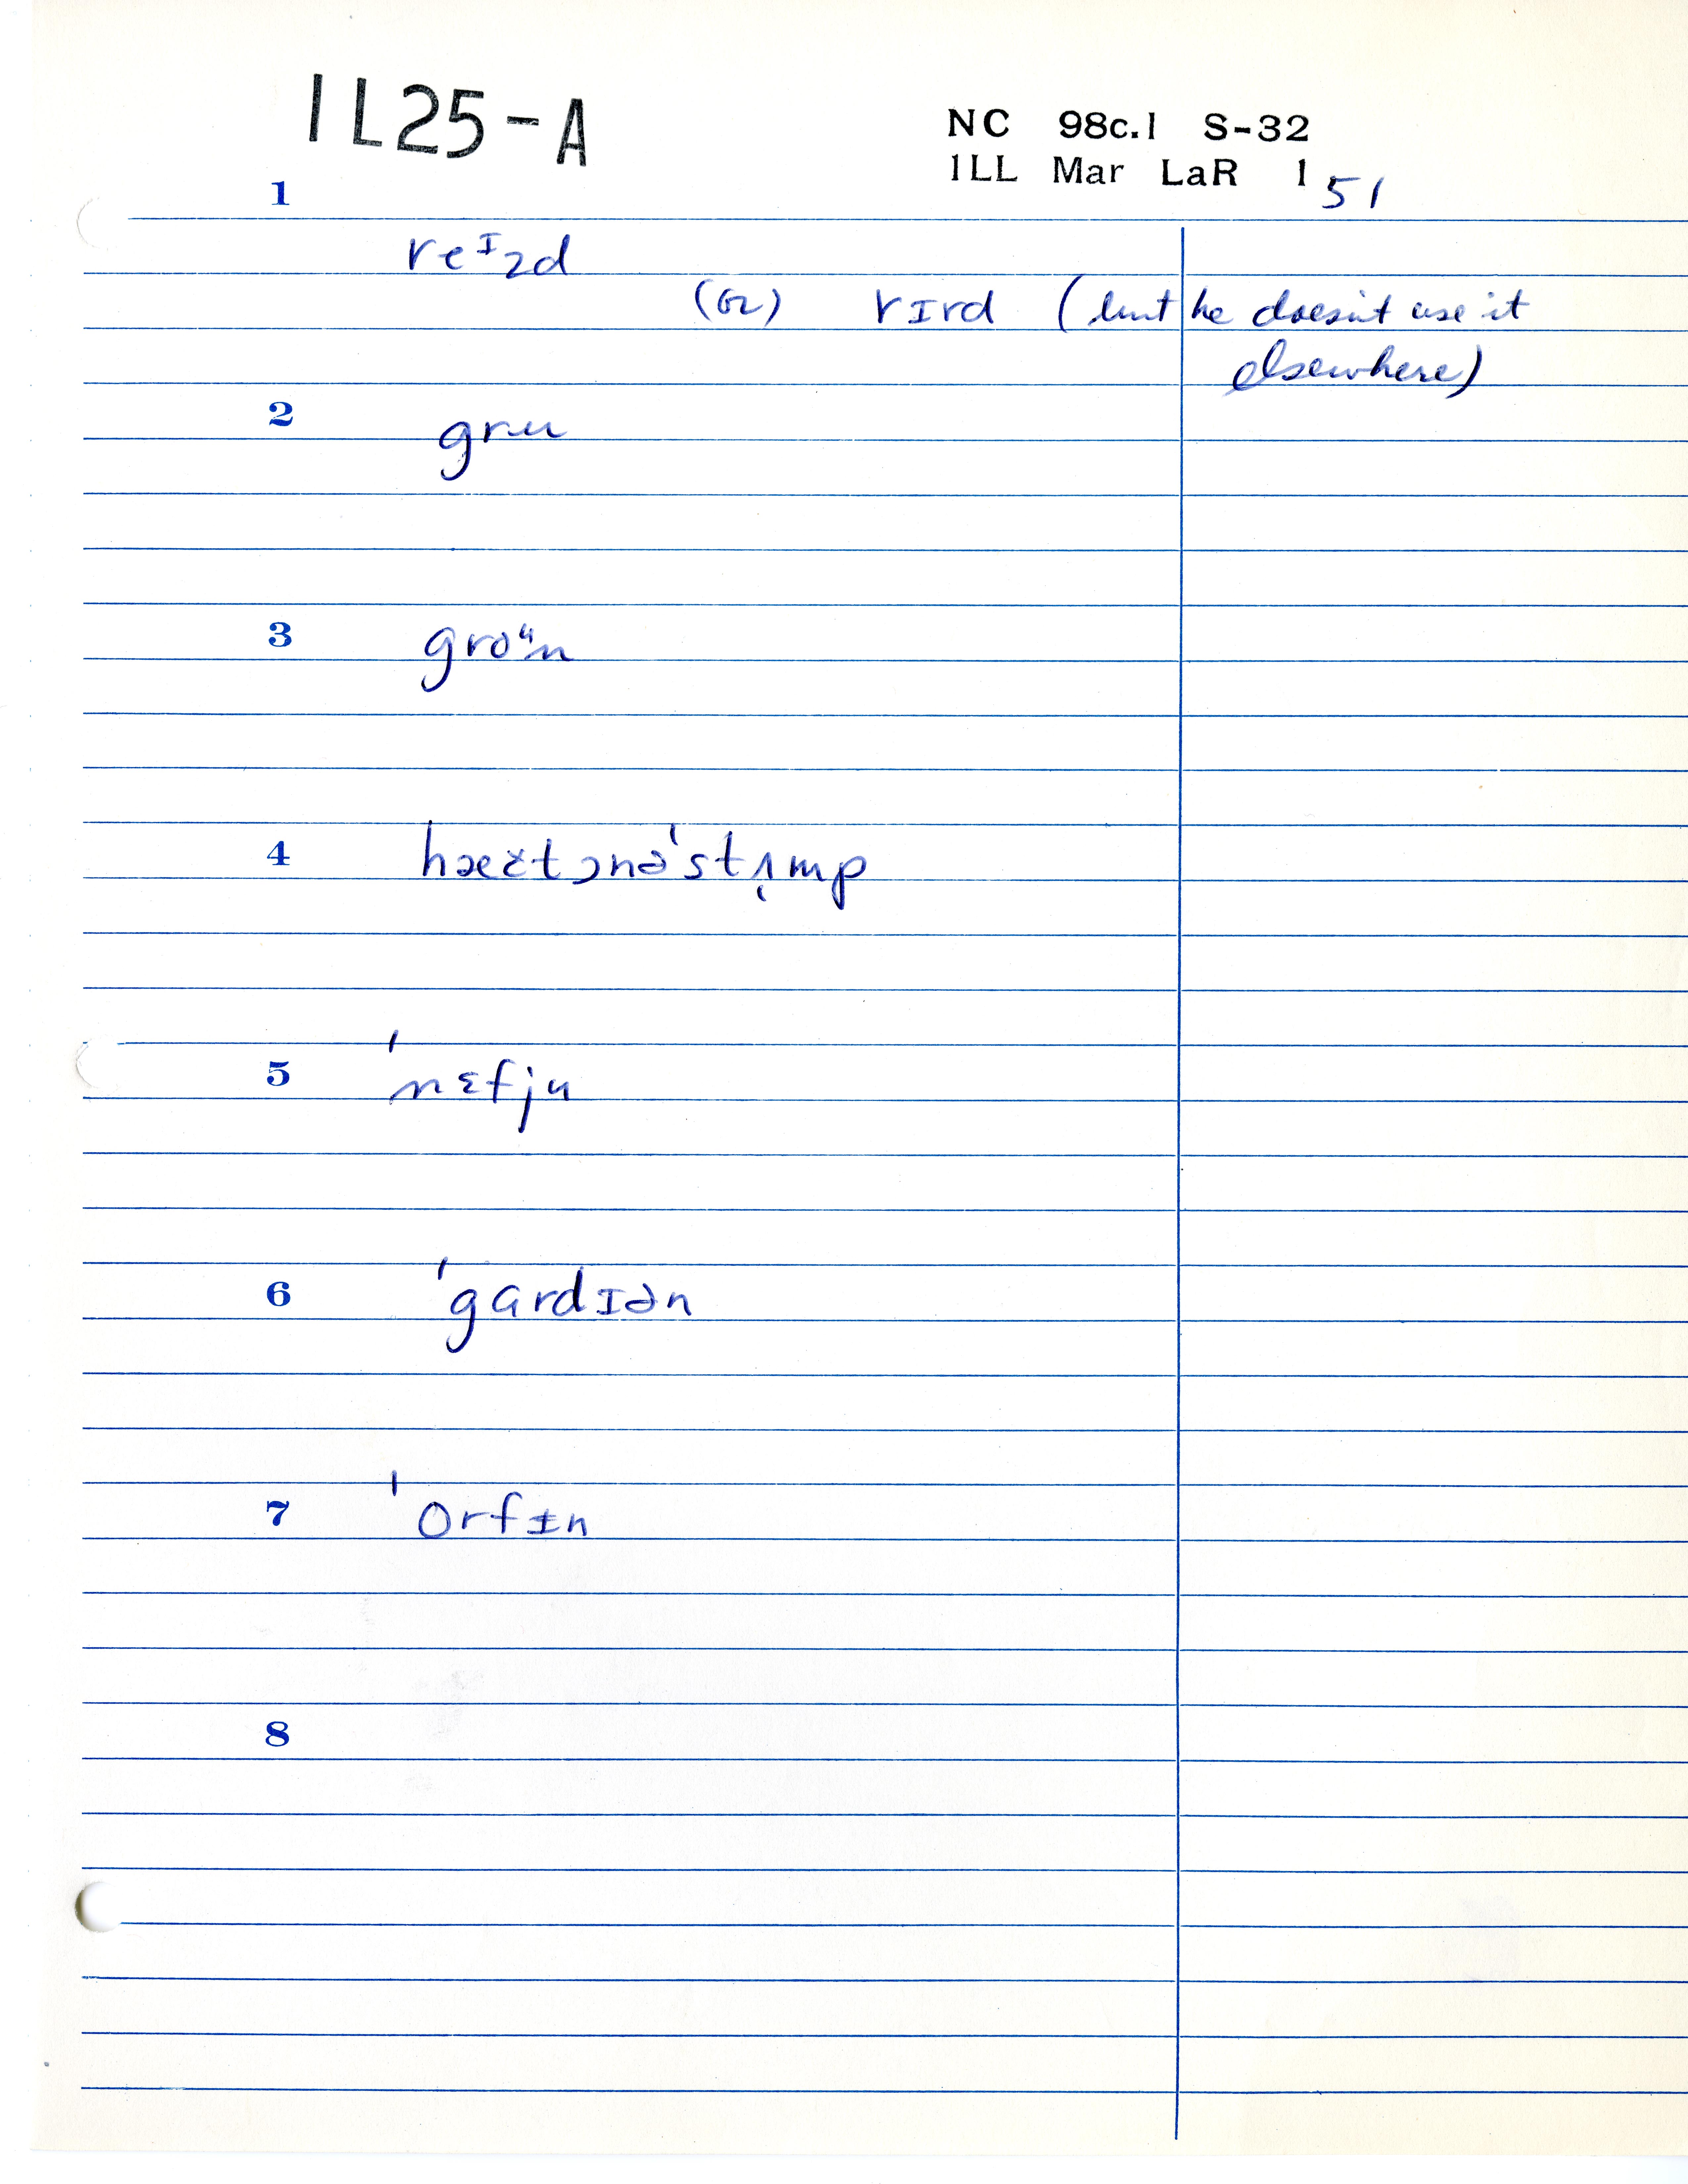 IL25-A
NC 98c.1 S-32
ILL Mar LaR 1 51
1
reᴵzd
(or) rɪrd (but he doesn't use it
elsewhere)
2
gru
3
groᶸn
4
hæxtɔnə'stʌ̨mp
5
'nɛfju
6
'gɑrdɪən
7
'orfɨn
8